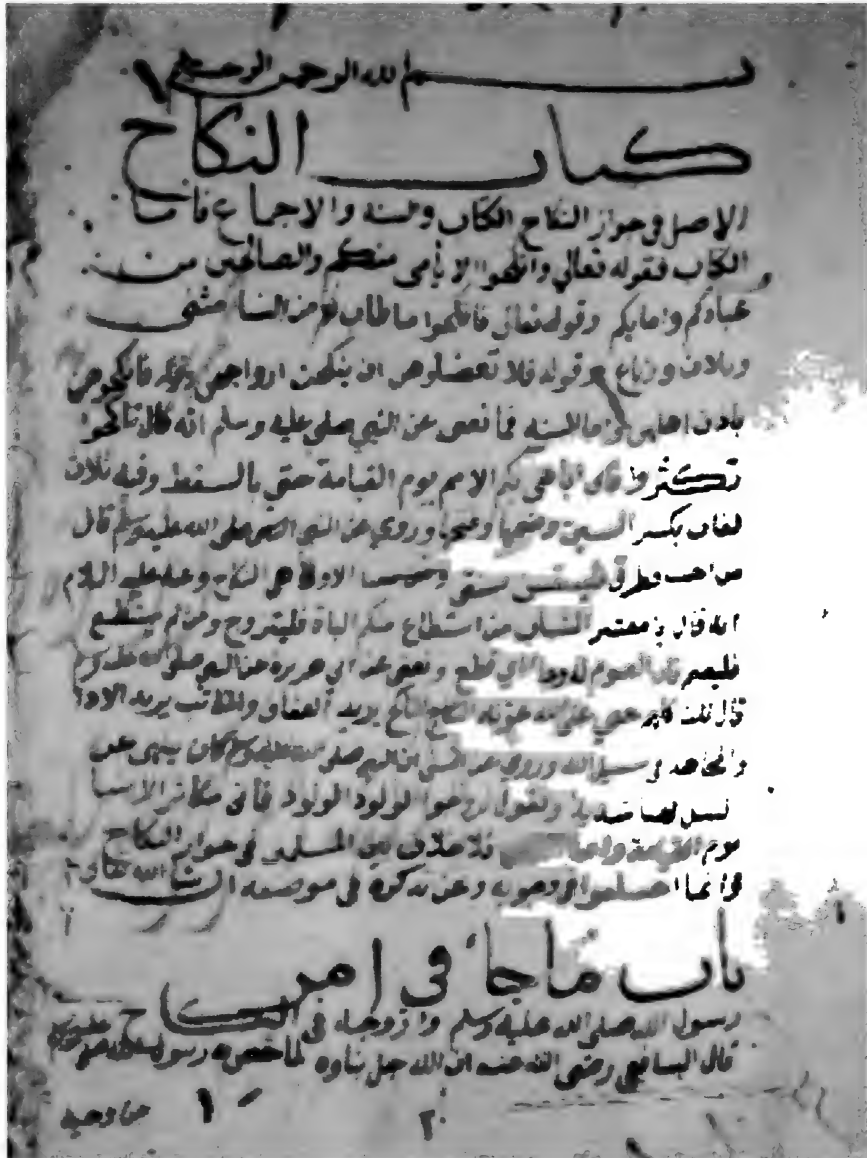 بسم الله الرحمن الرحيم
كتاب النكاح
الاصل في جواز النكاح الكتاب والسنه والاجماع فاما
الكتاب فقوله تعالي وانكحوا الايامى منكم والصالحين من
عبادكم وامايكم وقوله تعالى فانكحوا ما طاب لكم من النسا مثنى
وثلاث ورباع وقوله فلا تعضلوهن ان ينكحن ازواجهن وقوله فانكحوهن
باذن اهلهن واما السنه فما عن النبي صلى عليه وسلم انه قال تناكحوا
تكثروا فاني اباهي بكم الامم يوم القيامة حتي بالسقط وفيه ثلاث
لغات بكسر السين وضمها وفتحها وروي عن النبي صلى الله عليه وسلم قال
من احب فطرتي فليستن بسنتي الا وهي النكاح وعنه عليه السلام
انه قال يا معشر الشباب من استطاع منكم الباة فليتزوج ومن لم يستطع
فليصم فان الصوم له وجا اي قطع عن ابي هريرة عن النبي صلى الله عليه وسلم
قال ثلث حق على الله عونه الناكح يريد العفاف والمكاتب يريد الادا
والمجاهد في سبيل الله وروي عن انس ان النبي صلى الله عليه وسلم كان ينهى عن
شديدا ويقول تزوجوا الولود الودود فاني مكاثر الانبيا
يوم القيامة واما فلا خلاف بين المسلمين في جواز النكاح
وانما اختلفوا في وجوبه ونحن نذكره في موضعه ان شا الله تعالى
باب ما جا في امر
رسول الله صلى الله عليه وسلم وازواجه في النكاح
قال الشافعي رضى الله عنه ان الله جل ثناوه لما خص به رسوله عليه
من وحيه
٢٠